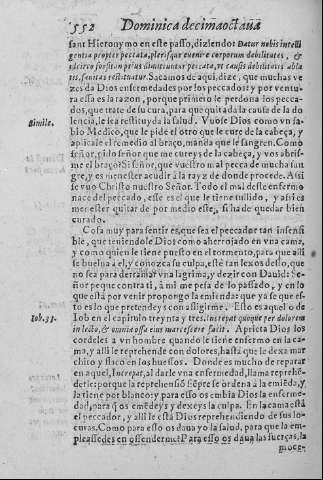 552 Dominica decimaoctaua
sant Hieronymo en este passo, diziendo: Datur nobis intelli
gentia propter peccata, plerisque euenire corporum debilitates, &
idcirco forsitan prius dimittuntur peccata, vt causis debilitatis abla
tis, sanitas restituatur. Sacamos de aqui, dize, que muchas ve
zes da Dios enfermedades por los peccados: y por ventu
ra essa es la razon, porque primero le perdona los pecca-
dos, que trate de su cura, para que quitada la causa de la do
lencia, le sea restituyda la salud. Vuose Dios como vn sa-
Simile. bio Medico, que le pide el otro que le cure de la cabeça, y
aplicale el remedio al braço, manda que le sangren. Como
señor, ido señor que me cureys de la cabeça, y vos abris-
me el braço? Si señor, que vuestro mal pecca de mucha san
gre, y es menester acudir à la rayz de donde procede. Assi
se vuo Christo nuestro Señor. Todo el mal deste enfermo
nace del peccado, esse es el que le tiene tullido, y assi es
menester quitar de por medio este, si ha de quedar bien
curado.
Cosa muy para sentir es, que sea el peccador tan insensi
ble, que teniendole Dios como aherrojado en vna cama,
y como quien le tiene puesto en el tormento, para que alli
se buelua a el, y conozca su culpa, este tan lexos desso, que
no sea para derramar vna lagrima, y dezir con Dauid: Se-
ñor peque contra ti, à mi me pesa de lo passado, y en lo
que està por venir propongo la emienda: que ya se que es-
to es lo que pretendeys con affligirme. Esto es aquello de
Iob. 33. Iob en el capitulo treynta y tres. Increpat quoque per dolorem
in lecto, & omnia ossa eius marcescere facit. Aprieta Dios los
cordeles a vn hombre quando le tiene enfermo en la ca-
ma, y alli le reprehende con dolores, hasta que le dexa mar
chito y flaco en los huessos. Donde es mucho de reparar
en aquel, Increpat, al darle vna enfermedad, llama reprehē-
derle: porque la reprehensiō siēpre se ordena à la emiēda, y
la tiene por blanco: y para esso os embia Dios la enferme-
dad, para q̃ os emēdeys y dexeys la culpa. En la cama està
el peccador, y alli le està Dios reprehendiendo de sus lo-
curas. Como para esso os daua yo la salud, para que la em-
pleassedes en offenderme? Para esso os daua las fuerças, la
moce-